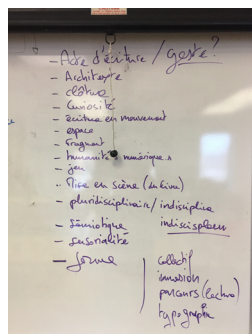 - Acte d'écriture / geste ?
- Architexte
- clôture
- Curiosité
- écriture en mouvement
- espace
- fragment
- humanités numériques
- jeu
- Mise en scène (du livre)
- pluridisciplinaire / indiscipline
indiscipleen
- Sémiotique
- sensorialité
- forme
collectif
immersion
parcours (lecture)
typographie